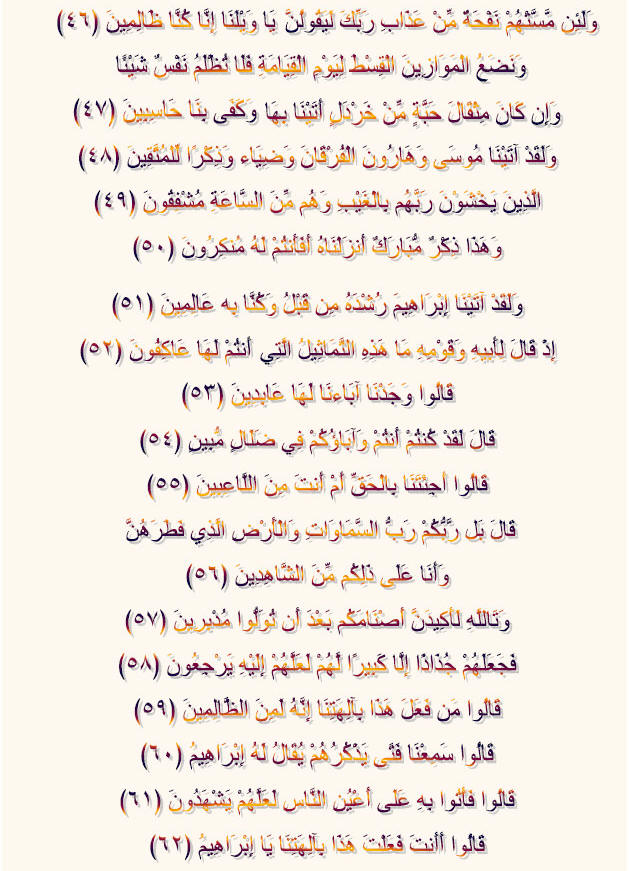 وَلَئِن مَّسَّتْهُمْ نَفْحَةٌ مِّنْ عَذَابِ رَبِّكَ لَيَقُولُنَّ يَا وَيْلَنَا إِنَّا كُنَّا ظَالِمِينَ (٤٦)
وَنَضَعُ الْمَوَازِينَ الْقِسْطَ لِيَوْمِ الْقِيَامَةِ فَلَا تُظْلَمُ نَفْسٌ شَيْئًا
وَإِن كَانَ مِثْقَالَ حَبَّةٍ مِّنْ خَرْدَلٍ أَتَيْنَا بِهَا وَكَفَى بِنَا حَاسِبِينَ (٤٧)
وَلَقَدْ آتَيْنَا مُوسَى وَهَارُونَ الْفُرْقَانَ وَضِيَاء وَذِكْرًا لِّلْمُتَّقِينَ (٤٨)
الَّذِينَ يَخْشَوْنَ رَبَّهُم بِالْغَيْبِ وَهُم مِّنَ السَّاعَةِ مُشْفِقُونَ (٤٩)
وَهَذَا ذِكْرٌ مُّبَارَكٌ أَنزَلْنَاهُ أَفَأَنتُمْ لَهُ مُنكِرُونَ (٥٠)
وَلَقَدْ آتَيْنَا إِبْرَاهِيمَ رُشْدَهُ مِن قَبْلُ وَكُنَّا بِه عَالِمِينَ (٥١)
إِذْ قَالَ لِأَبِيهِ وَقَوْمِهِ مَا هَذِهِ التَّمَاثِيلُ الَّتِي أَنتُمْ لَهَا عَاكِفُونَ (٥٢)
قَالُوا وَجَدْنَا آبَاءنَا لَهَا عَابِدِينَ (٥٣)
قَالَ لَقَدْ كُنتُمْ أَنتُمْ وَآبَاؤُكُمْ فِي ضَلَالٍ مُّبِينٍ (٥٤)
قَالُوا أَجِئْتَنَا بِالْحَقِّ أَمْ أَنتَ مِنَ اللَّاعِبِينَ (٥٥)
قَالَ بَل رَّبُّكُمْ رَبُّ السَّمَاوَاتِ وَالْأَرْضِ الَّذِي فَطَرَهُنَّ
وَأَنَا عَلَى ذَلِكُم مِّنَ الشَّاهِدِينَ (٥٦)
وَتَاللَّهِ لَأَكِيدَنَّ أَصْنَامَكُم بَعْدَ أَن تُوَلُّوا مُدْبِرِينَ (٥٧)
فَجَعَلَهُمْ جُذَاذًا إِلَّا كَبِيرًا لَّهُمْ لَعَلَّهُمْ إِلَيْهِ يَرْجِعُونَ (٥٨)
قَالُوا مَن فَعَلَ هَذَا بِآلِهَتِنَا إِنَّهُ لَمِنَ الظَّالِمِينَ (٥٩)
قَالُوا سَمِعْنَا فَتًى يَذْكُرُهُمْ يُقَالُ لَهُ إِبْرَاهِيمُ (٦٠)
قَالُوا فَأْتُوا بِهِ عَلَى أَعْيُنِ النَّاسِ لَعَلَّهُمْ يَشْهَدُونَ (٦١)
قَالُوا أَأَنتَ فَعَلْتَ هَذَا بِآلِهَتِنَا يَا إِبْرَاهِيمُ (٦٢)